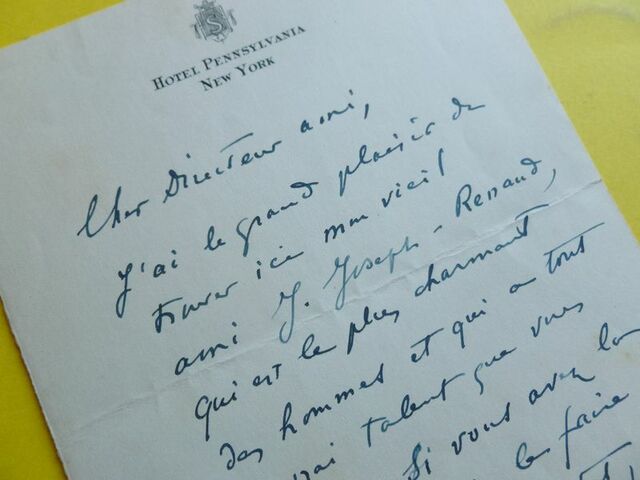 S
HOTEL PENNSYLVANIA
NEW YORK
Cher Directeur ami,
J'ai le grand plaisir de
trouver ici mon vieil
ami J. Joseph-Renaud,
qui est le plus charmant
des hommes et qui a tout
vrai talent que vous
Si vous avez la
les faire